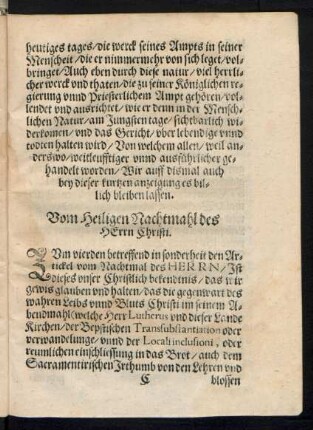 heutiges tages/die werck seines Ampts in seiner
Menscheit/die er nimmermehr von sich leget/vol-
bringet/Auch eben durch diese natur/viel herrli-
cher werck vnd thaten/die zu seiner Königlichen re-
gierung vnnd Priesterlichem Ampt gehören/vol-
lendet vnd ausrichtet/wie er denn in der Mensch-
lichen Natur/am Jungsten tage/sichtbarlich wi-
derkomen/vnd das Gericht/vber lebendige vnnd
todten halten wird/Von welchem allen/weil an-
derswo/weitleufftiger vnnd ausführlicher ge-
handelt worden/Wir auff dismal auch
bey dieser kurtzen anzeigung es bil-
lich bleiben lassen.
Vom Heiligen Nachtmahl des
HErrn Christi.
ZVm vierden betreffend in sonderheit den Ar-
tickel vom Nachtmal des HERRN/Jst
dieses vnser Christlich bekendtnis/das wir
gewis glauben vnd halten/das die gegenwart des
wahren Leibs vnnd Bluts Christi im seinem A-
bendmahl (welche Herr Lutherus vnd dieser Lande
Kirchen/der Bepstischen Transsubstantiation oder
verwandelunge/vnnd der Locali inclusioni, oder
reumlichen einschliessung in das Brot/auch dem
Sacramentirischen Jrthumb von den Lehren vnd
C blossen